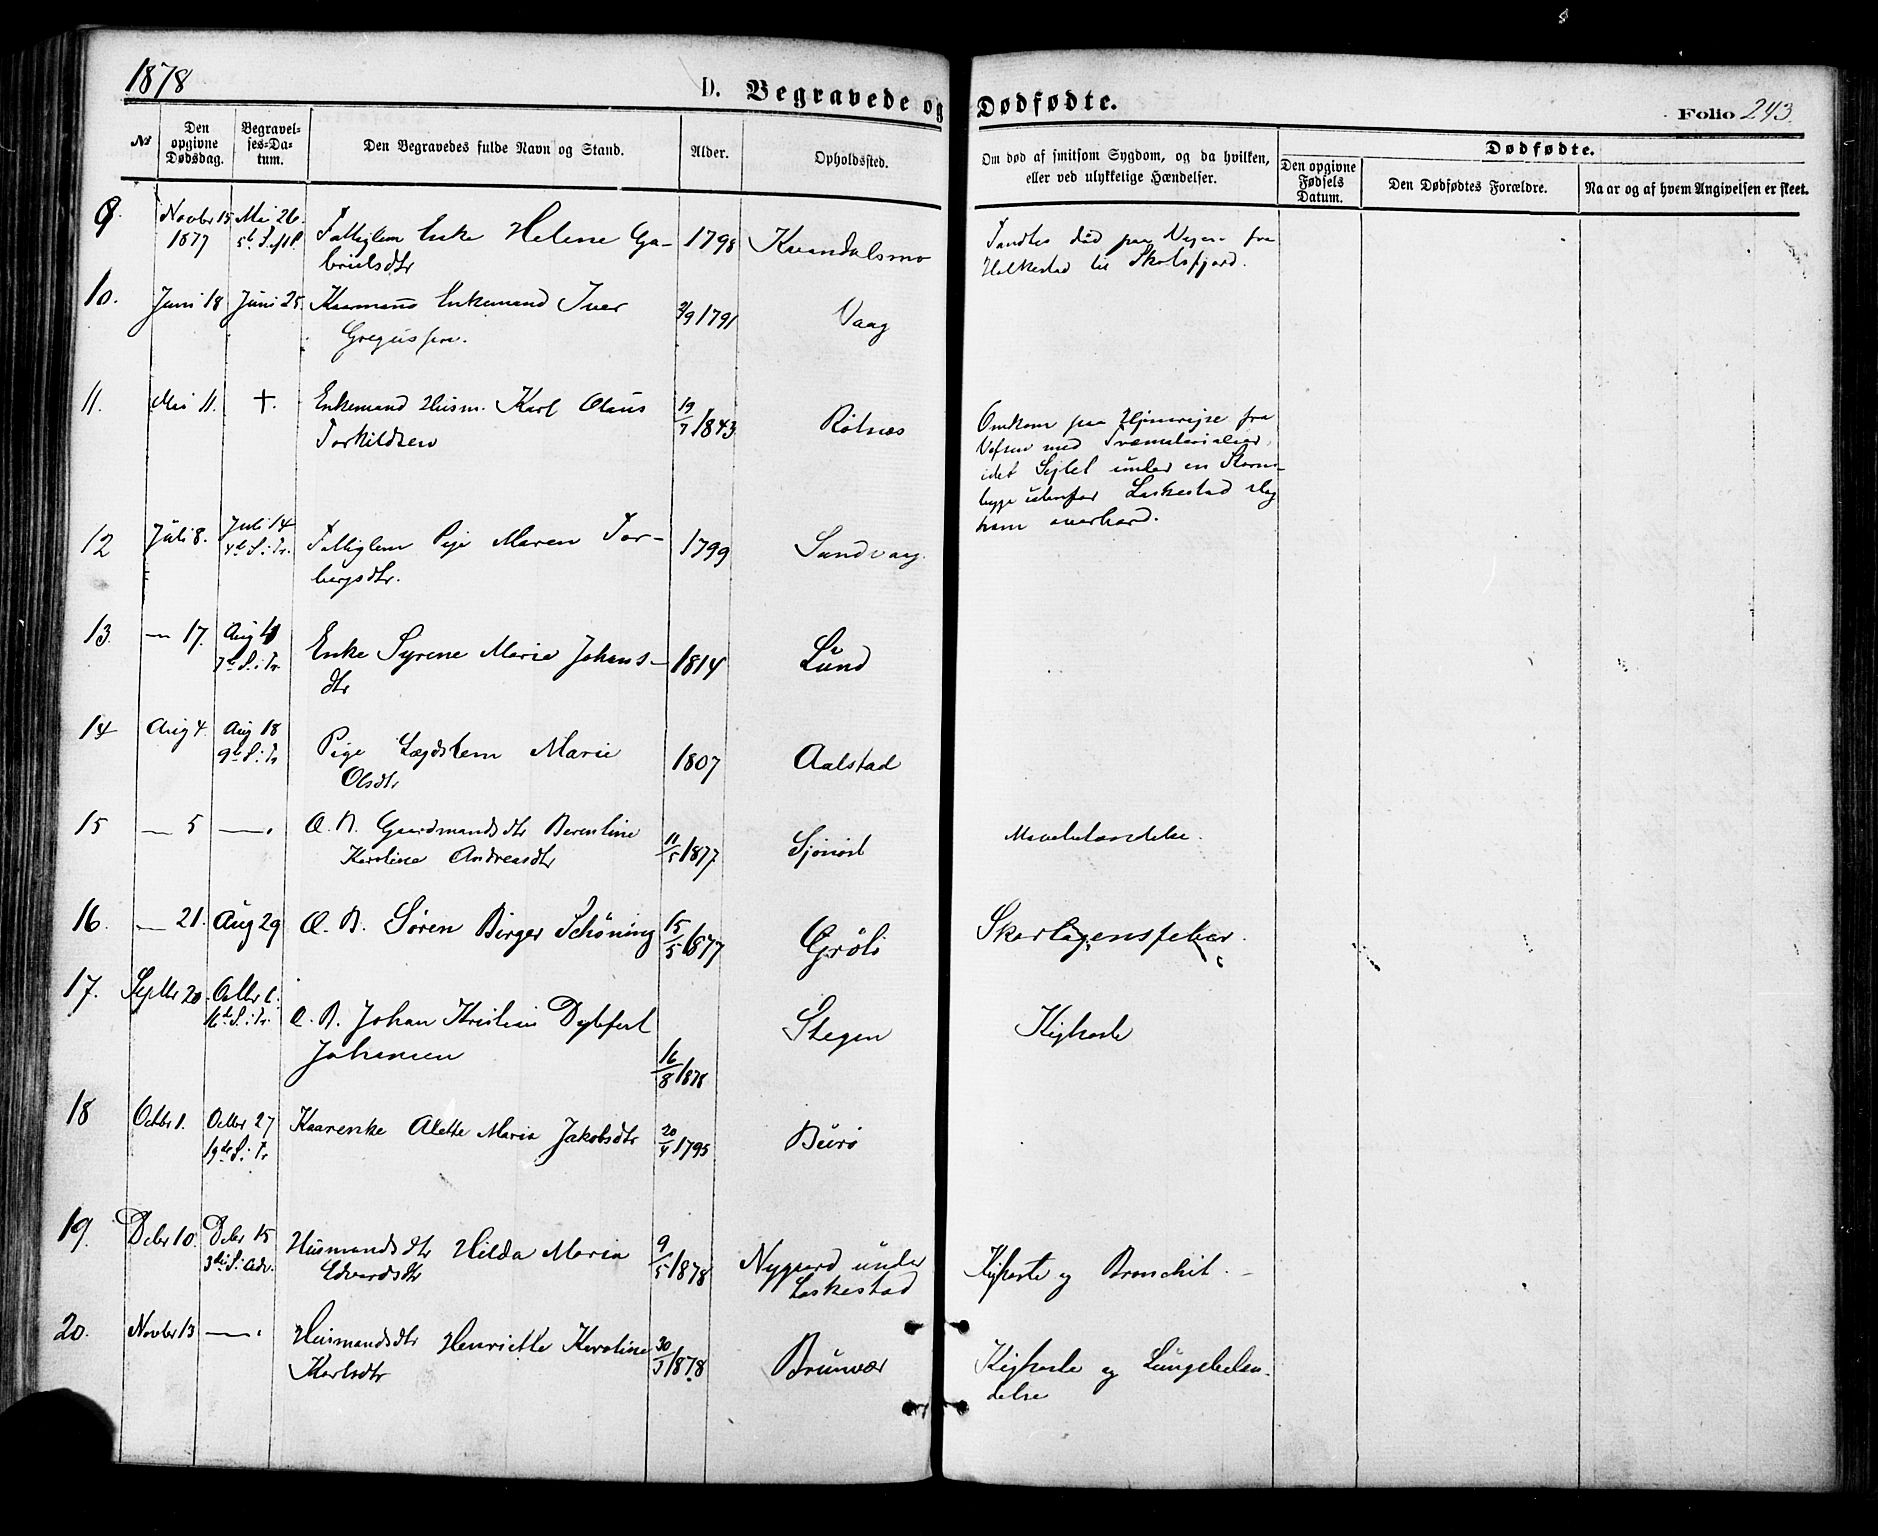 1878
D. Begravede og Dødfødte.
Folio 243.
No
Den opgivne Dødsdag.
Begravelses-Datum.
Den Begravedes fulde Navn og Stand.
Alder.
Opholdssted.
Om død af smitsom Sygdom, og da hvilken, eller ved ulykkelige Hændelser.
Dødfødte.
Den opgivne Fødsels Datum.
Den Dødfødtes Forældre.
Naar og af hvem Angivelsen er skeet.
9. Novbr 15 Mai 26. Fattiglem Enke Helene Ga- 1798 Kvandalsmo Fandtes død paa Vejen fra
1877 brielsdtr Helkestad til Skotsfjord.
10. Juni 18 Juni 25. Kaarmans Enkemand Iver 2/9 1791 Vaag
Gregussen.
11. Mai 11. +. Enkemand Husm. Karl Olaus 19/7 1843 Rotnes Omkom paa Hjemrejse fra
Torkildsen Vefsen med Træmaterialier,
idet Sejlet under en Storm-
bygge udenfor Laskestad slog
ham overbord.
12 Juli 8. Juli 14 Fattiglem Pige Maren Tor- 1799 Sandvaag.
4de S. i Tr. bergsdtr.
13. — 17. Aug 4 Enke Syrene Marie Johans- 1814 Lund
7de S. i Tr dtr
14 Aug 4. Aug 18 Pige Lægdslem Marie 1807 Aalstad
9de S. i Tr Olsdtr
15 — 5 —. Æ. B. Gaardmandsdtr Berentine 11/5 1877 Sjønøst Mavebetændelse.
Karoline Andreasdtr
16. — 21. Aug 29 Æ. B. Søren Birger Schöning 15/5 1877 Grøli Skarlagensfeber.
17. Septbr 20. Octbr 6. Æ. B. Johan Kristian Dybfest Stegen Kighoste
16de S. i Tr. Johansen 16/8 1878
18 Octbr 1. Octbr 27 Kaarenke Alette Maria Jakobsdtr 20/4 1795 Burø
19de S. i Tr
19. Debr 10. Debr 15 Husmandsdtr Hilda Maria 9/5 1878 Nygaard under Kighoste og Bronchit. —
3die S. i Adv. Edvardsdtr Laskestad
20. Novbr 13 —. Husmandsdtr Henriette Karoline 30/3 1878 Brunvær Kighoste og Lungebetæn-
Karlsdtr delse